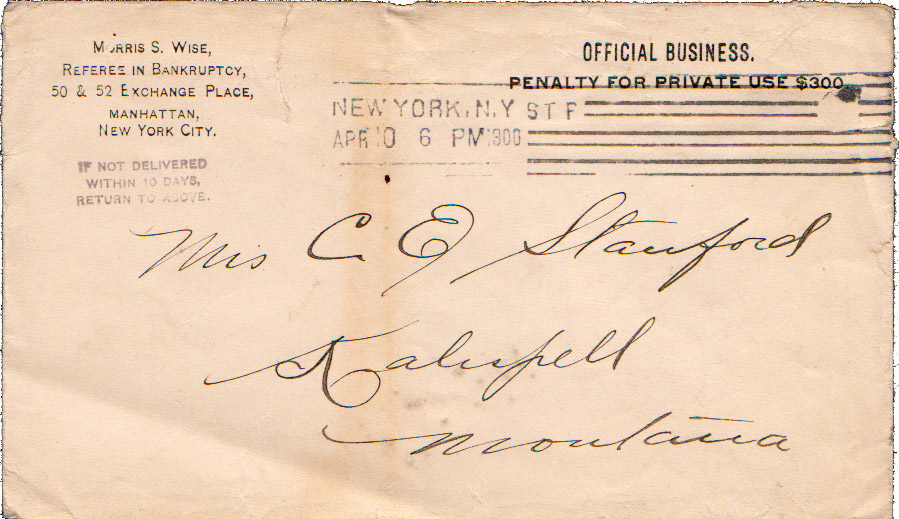 MORRIS S. WISE,
REFEREE IN BANKRUPTCY,
50 & 52 EXCHANGE PLACE,
MANHATTAN,
NEW YORK CITY.
IF NOT DELIVERED
WITHIN 10 DAYS,
RETURN TO ABOVE.
OFFICIAL BUSINESS.
PENALTY FOR PRIVATE USE $300
NEW YORK, N.Y STF
APR 10 6 PM 1900
Mrs C. E. Stanford
Kalispell
Montana